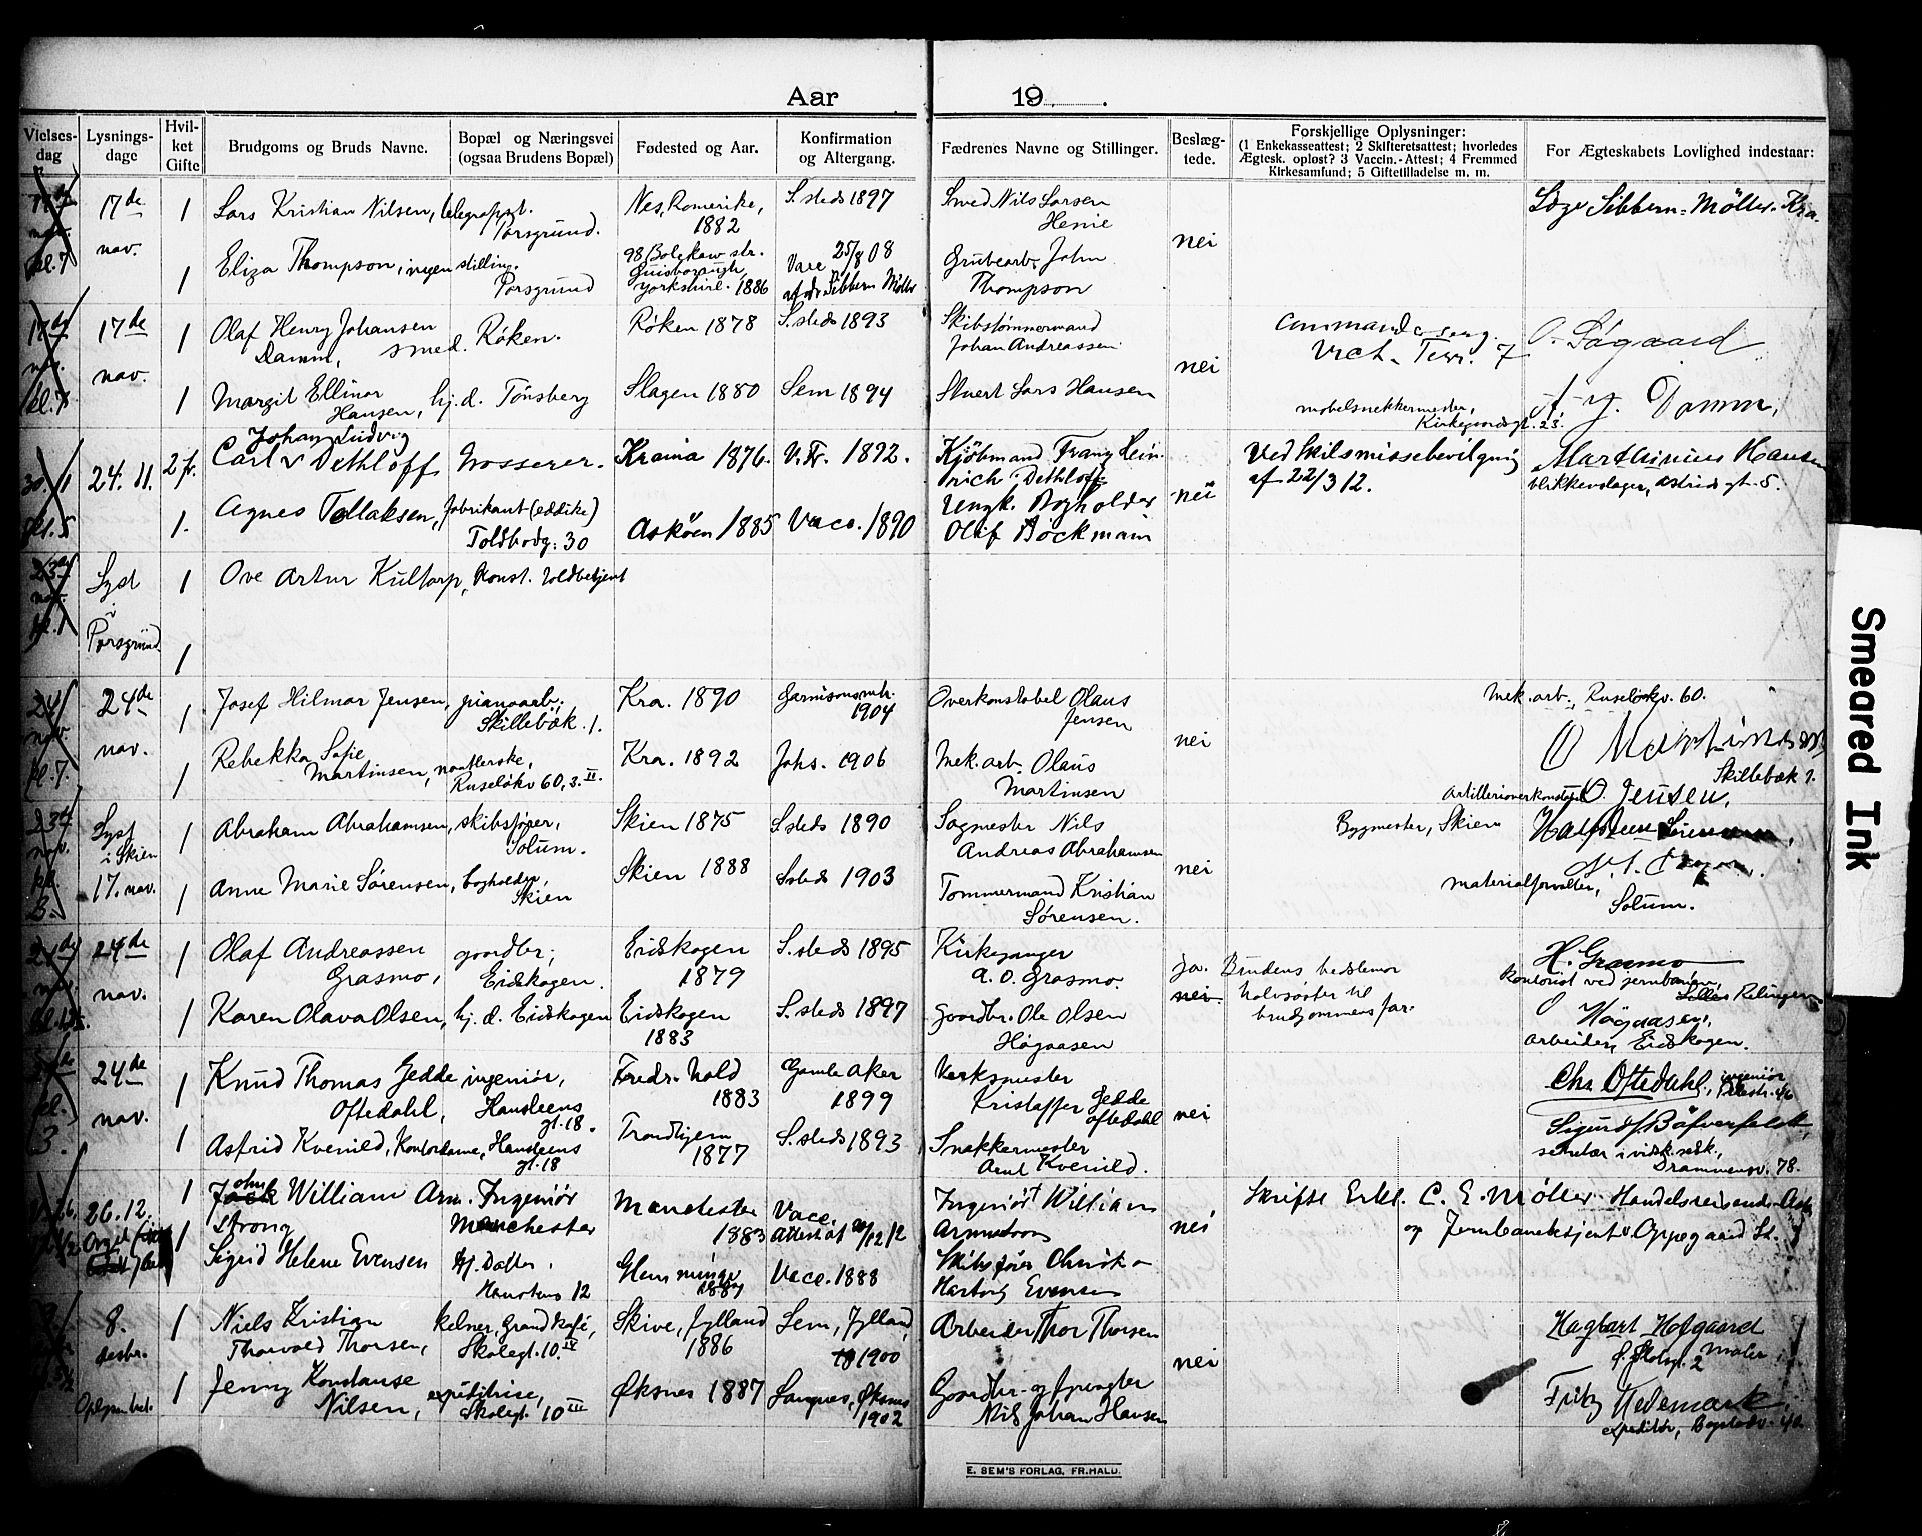 Aar 19 .
Vielses-dag
Lysnings-dage
Hvil-ket Gifte
Brudgoms og Bruds Navne.
Bopæl og Næringsvei (ogsaa Brudens Bopæl)
Fødested og Aar.
Konfirmation og Altergang.
Fædrenes Navne og Stillinger.
Beslæg-tede.
Forskjellige Oplysninger:
(1 Enkekasseattest; 2 Skifteretsattest; hvorledes
Ægtesk. opløst? 3 Vaccin.-Attest; 4 Fremmed
Kirkesamfund; 5 Giftetilladelse m. m.
For Ægteskabets Lovlighed indestaar:
17de nov. kl. 7
17de nov.
1
Lars Kristian Nilsen, telegrafist. Porsgrund.
Nes, Romerike, 1882
S. steds 1897
Smed Nils Larsen Henie
nei
Læge Sibbern-Möller. Kra.
1
Eliza Thompson, ingen stilling. Porsgrund
98 Bolckow str. Guisborough, Yorkshire. 1886
Vacc 25/8 08 af dr. Sibbern Møller
Grubearb. John Thompson
17de nov. kl. 7
17de nov.
1
Olaf Henry Johansen Damm, smed. Røken.
Røken 1878
S. steds 1893
Skibstømmermand Johan Andreassen
nei
7
O. Søgaard
1
Margit Ellinor Hansen, hj. d. Tønsberg
Slagen 1880
Sem 1894
Stuert Lars Hansen
møbelsnekkermester, Kirkegaardsgt. 23.
Damm,
30/11 kl. 5
24. 11.
2 fr.
Johan Ludvig
Carl v Dethloff
Krania 1876.
V. Fr. 1892.
Kjöbmand Franz Hein-
rich Dethloff
nei
Ved skilsmissebevilgning
af 22/3 12.
Marthinius Hansen
blikkenslager, Astrids gt. 5.
1.
Agnes Tollaksen, fabrikant (eddike)
Toldbodg: 30
Askøen 1885
Vacc. 1890
Ungk. Bogholder
Olaf Böckmann
23de nov. kl. 1
Lyst i Porsgrund
1
Ove Artur Kultorp, konst. toldbetjent
1
24/ nov. kl. 7.
24de nov.
1
Josef Hilmar Jensen, pianoarb; Skillebæk. 1.
Kra. 1890
Garnisonsmh. 1904
Overkonstabel Olaus Jensen
nei
Mek. arb., Ruseløkv. 60.
O Martinsen
1
Rebekka Sofie Martinsen, naatlerske, Ruseløkv 60, 3. II.
Kra. 1892
Johs. 1906
Mek. arb. Olaus Martinsen
Skillebæk 1.
Artillerioverkonstabel O. Jensen.
23de nov. kl.
Lyst i Skien 17. nov.
1
Abraham Abrahamsen, skibsfører, Solum.
Skien 1875
S. steds 1890
Sagmester Nils Andreas Abrahamsen
nei
Bygmester, Skien
1
Anne Marie Sørensen, bogholder, Skien
Skien 1888
S steds 1903
Tømmermand Kristian Sørensen.
Materialforvalter, Solum.
24de nov.
24de nov.
1
Olaf Andreassen Grasmo, gaardbr; Eidskogen.
Eidskogen 1879
S. steds 1895
Kirkesanger A. O. Grasmo.
ja.
nei
Brudens bedstemor
halvsøster til
brudgommens far.
H. Grasmo
kontorist ved jernbanen,
1
Karen Olava Olsen, hj. d. Eidskogen
Eidskogen 1883
S. steds 1897
Gaardbr. Ole Olsen Høgaasen
O Høgaasen,
arbeider, Eidskogen.
kl. 3.
24de nov.
1
Knud Thomas Gedde Oftedahl, ingeniør, Hansteens gt. 18.
Fredr.vold 1883
Gamle Aker 1899
Verksmester Kristoffer Gedde Oftedahl
nei
Chr Oftedahl, ingeniør
1
Astrid Kvenild, kontordame, Hansteens gt. 18
Trondhjem 1877
S. steds 1893
Snekkermester Arnt Kvenild.
Drammensv. 78.
26. 12.
1
John William Arm-
strong
Ingeniör
Manchester
Manchester 1883
Vacc. Attest af 20/12 12
Ingeniör William
Armstrong
nei
Skriftl Erkl. C. E. Möller Handelsreisende
og Jernbanebetjent Oppegaard St.
1
Sigrid Helene Evensen
Hj. Datter,
12
Glemminge
Vacc. 1888
Skibsfører
Hartvig Evensen
8. desbr.
1
Niels Kristian Thorvald Thorsen, kelner, Grand kafé, Skolegt. 10. IV
Skive, Jylland 1886
Sem, Jylland, 1900
Arbeider Thor Thorsen
nei
Hagbart Hofgaard
maler
1
Jenny Konstanse Nilsen, expeditrise, Skolegt. 10 III
Øksnes 1887
Langnes, Øksnes 1902
Gaardbr. og
Nils Johan Hansen
Fritz Hedemark,
expeditør, Bogstadv.
E. SEM'S FORLAG, FR.HALD.
Smeared Ink